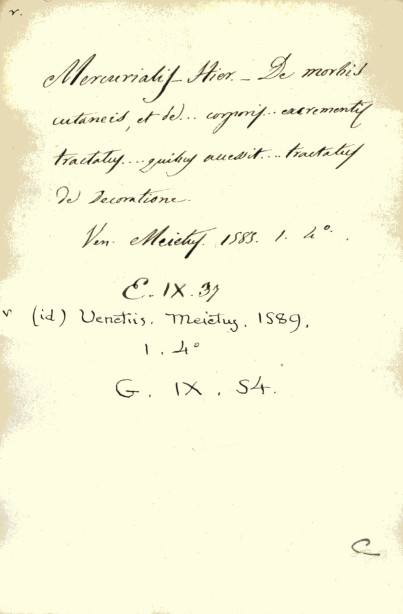 v.
Mercurialis Hier. – De morbis
cutaneis, et de... corporis.. excrementis
tractatus.... quibus accessit... tractatus
de decoratione.
Ven. Meietus. 1585. 1. 4°.
E. IX. 37
v (id) Venetiis. Meietus. 1589.
1. 4°
G. IX. 54.
C